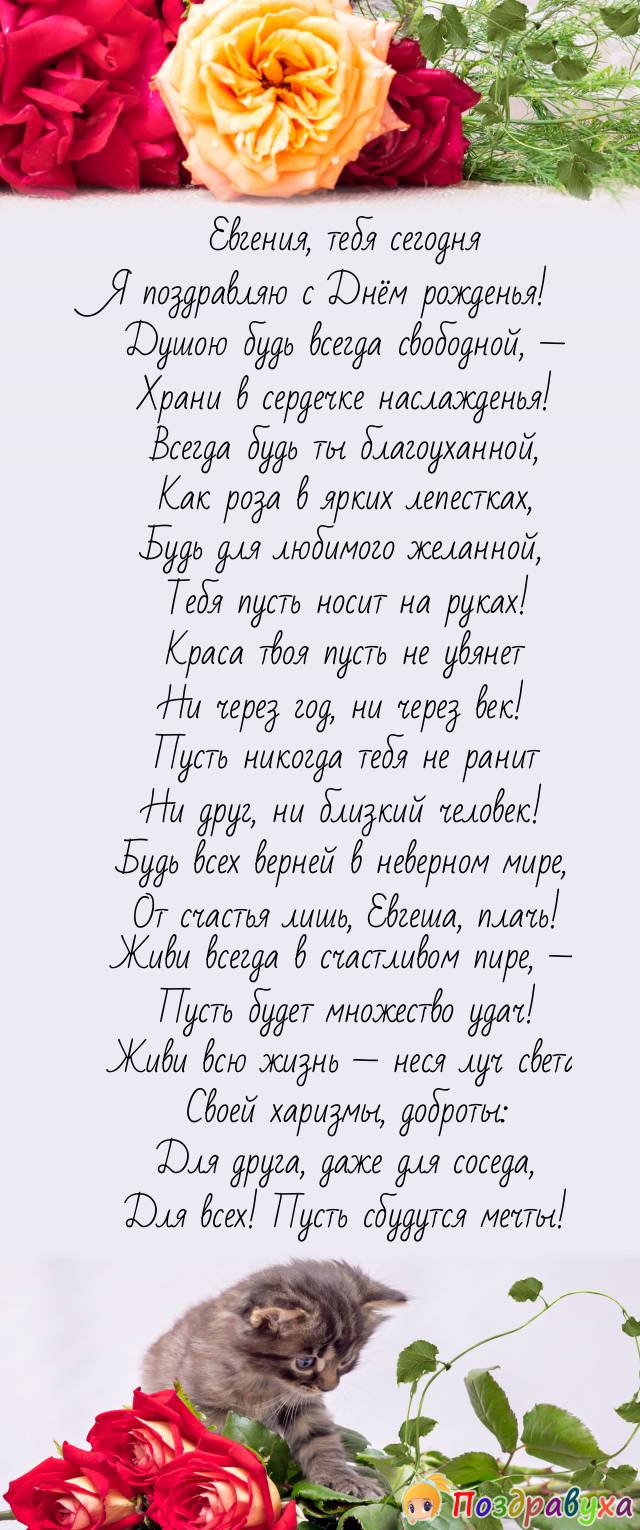 Евгения, тебя сегодня
Я поздравляю с Днём рожденья!
Душою будь всегда свободной, —
Храни в сердечке наслажденья!
Всегда будь ты благоуханной,
Как роза в ярких лепестках,
Будь для любимого желанной,
Тебя пусть носит на руках!
Краса твоя пусть не увянет
Ни через год, ни через век!
Пусть никогда тебя не ранит
Ни друг, ни близкий человек!
Будь всех верней в неверном мире,
От счастья лишь, Евгеша, плачь!
Живи всегда в счастливом пире, —
Пусть будет множество удач!
Живи всю жизнь — неся луч света
Своей харизмы, доброты:
Для друга, даже для соседа,
Для всех! Пусть сбудутся мечты!
Поздравуха